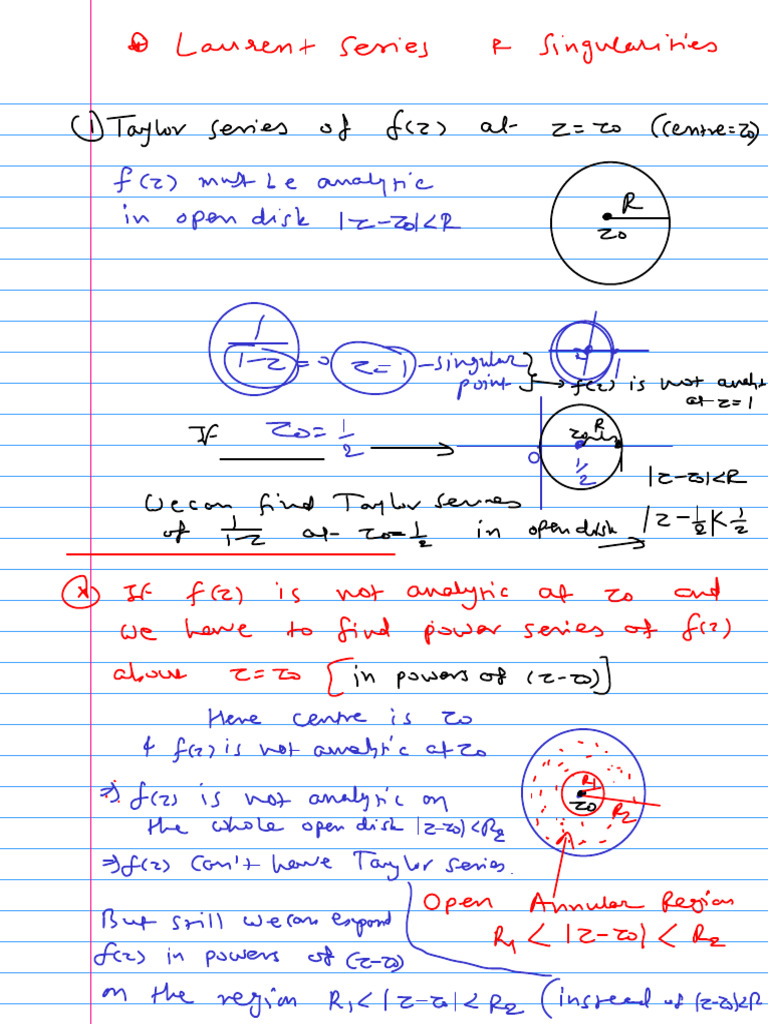 Laurent series & Singularities
(1) Taylor series of f(z) at z=z0 (centre=z0)
f(z) must be analytic
in open disk |z-z0|<R
R
z0
1/(1-z) = 0 z=1 - singular point } → f(z) is not analyt
at z=1
1
If z0=1/2 →
R
0
1/2
|z-z0|<R
We can find Taylor series
of 1/(1-z) at z0=1/2 in open disk → |z-1/2|<1/2
(*) If f(z) is not analytic at z0 and
we have to find power series of f(z)
about z=z0 [in powers of (z-z0)]
Here centre is z0
& f(z) is not analytic at z0
⇒ f(z) is not analytic on
the whole open disk |z-z0|<R2
R1
z0
R2
⇒ f(z) can't have Taylor series.
Open Annular Region
R1 < |z-z0| < R2
But still we can expand
f(z) in powers of (z-z0)
on the region R1<|z-z0|<R2 (instead of |z-z0|<R